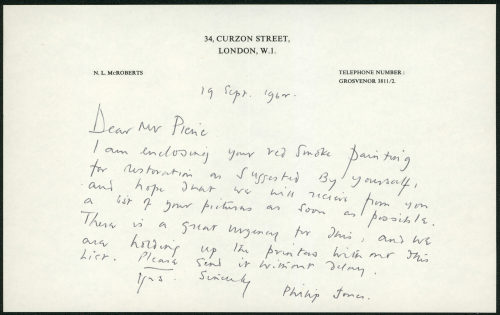 34, CURZON STREET,
LONDON, W.1.
N. L. McROBERTS
TELEPHONE NUMBER :
GROSVENOR 3811/2.
19 Sept. 1964.
Dear Mr Piene
I am enclosing your red Smoke Painting
for restoration as Suggested By yourself,
and hope that we will receive from you
a list of your pictures as soon as possible.
There is a great urgency for this, and we
are holding up the printers without this
List. Please Send it without delay.
Yrs. Sincerely
Philip Jones.